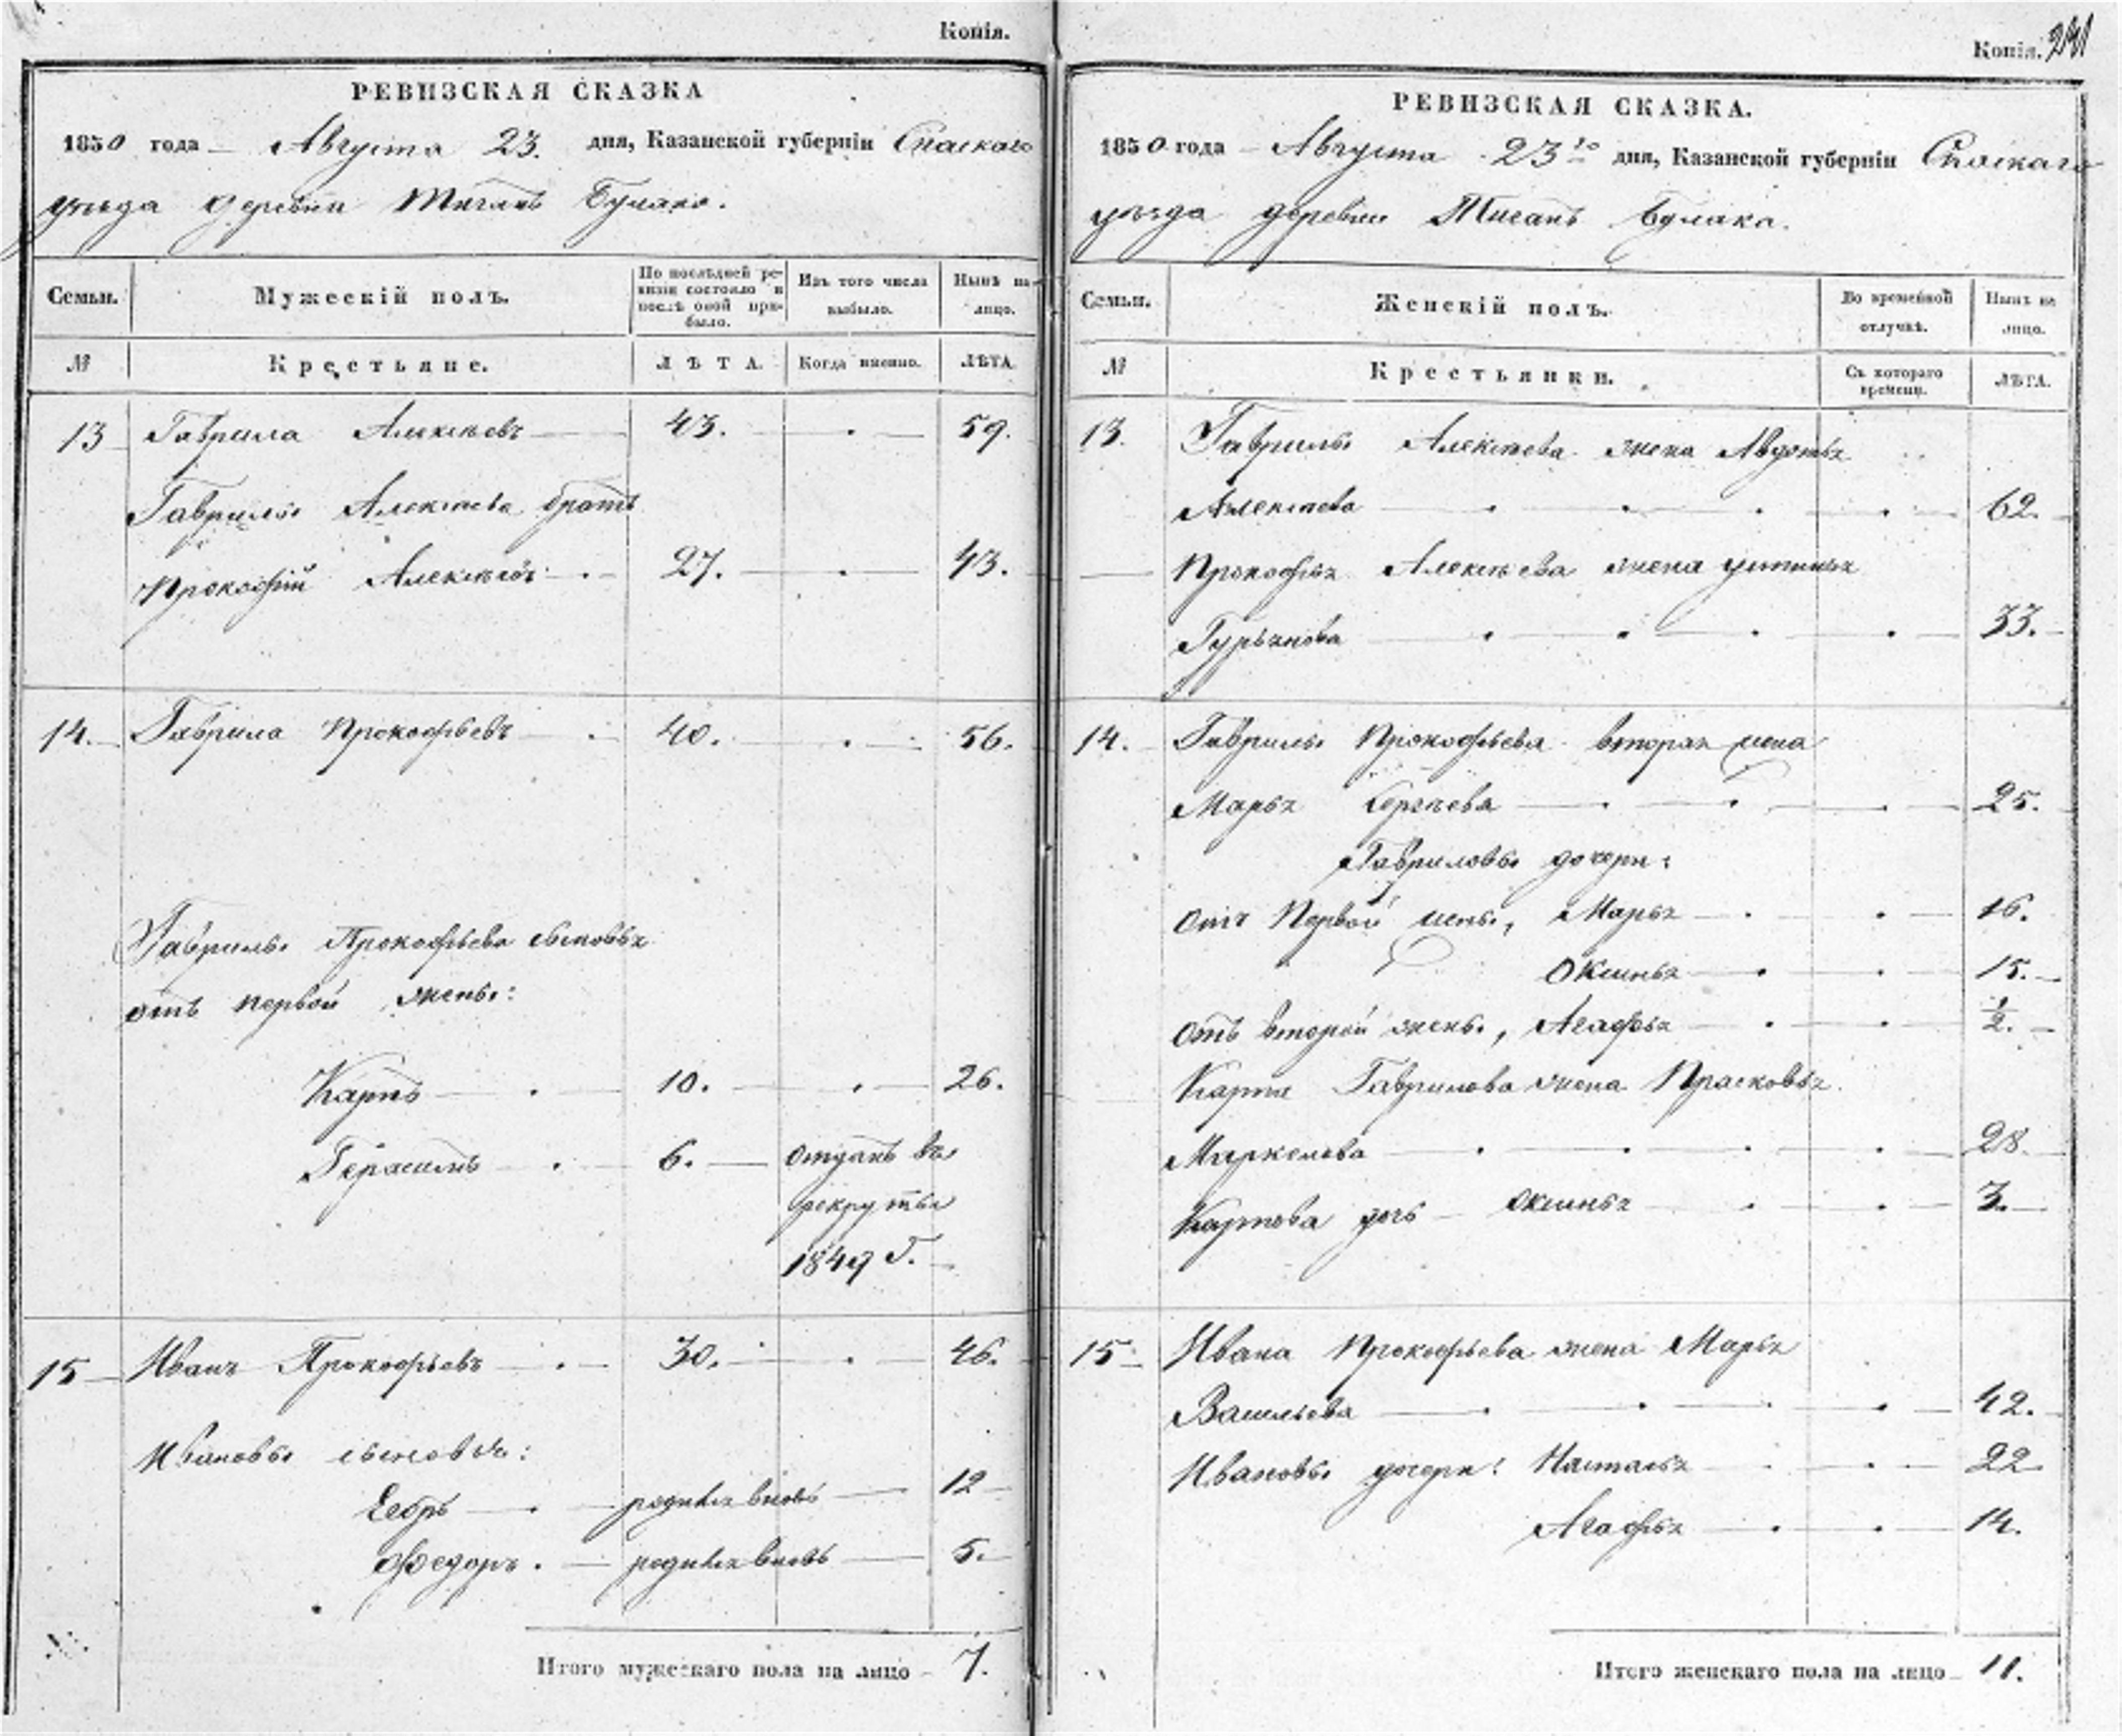 Копія.
РЕВИЗСКАЯ СКАЗКА
1850 года Августа 23. дня, Казанской губерніи Спаскаго
уѣзда деревни Тиганъ Булака.
Семьи. Мужескій полъ. По послѣдней ревизіи состояло и послѣ оной прибыло. Изъ того числа выбыло. Нынѣ на лицо.
№ Крестьяне. ЛѢТА. Когда именно. ЛѢТА.
13 Гаврила Алексѣевъ 43. 59.
Гаврилы Алексѣева братъ
Прокофій Алексѣевъ 27. 43.
14. Гаврила Прокофьевъ 40. 56.
Гаврилы Прокофьева сыновья
отъ первой жены:
Карпъ 10. 26.
Герасимъ 6. отданъ въ
рекруты
1849 г.
15 Иванъ Прокофьевъ 30. 46.
Ивановы сыновья:
родился вновь 12
Федоръ. родился вновь 5.
Итого мужескаго пола на лицо 7.
Копія. 241
РЕВИЗСКАЯ СКАЗКА.
1850 года Августа 23го дня, Казанской губерніи Спаскаго
уѣзда деревни Тиганъ Булака.
Семьи. Женскій полъ. Во временной отлучкѣ. Нынѣ на лицо.
№ Крестьянки. Съ котораго времени. ЛѢТА.
13. Гаврилы Алексѣева жена Авдотья
Алексѣева 62.
Прокофья Алексѣева жена Устинья
Гурьянова 33.
14. Гаврилы Прокофьева вторая жена
Марья Сергѣева 25.
Гавриловы дочери:
отъ Первой жены, Марья 16.
Оксинья 15.
отъ второй жены, Агафья ½.
Карпа Гаврилова жена Прасковья
Маркелова 28.
Карпова дочь Оксинья 3.
15. Ивана Прокофьева жена Марья
Васильева 42.
Ивановы дочери: Насталья 22
Агафья 14.
Итого женскаго пола на лицо 11.